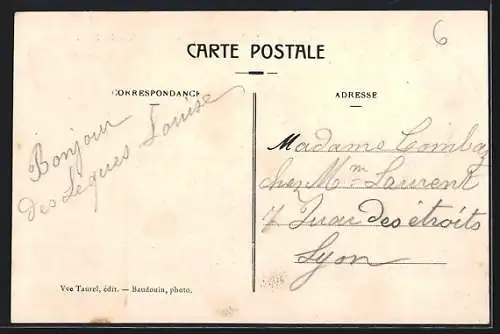 6
CARTE POSTALE
CORRESPONDANCE
ADRESSE
Bonjour
des Lèques Louise
Madame Combaz
chez Mme Laurent
7 Quai des étroits
Lyon
Vve Taurel, édit. — Baudouin, photo.